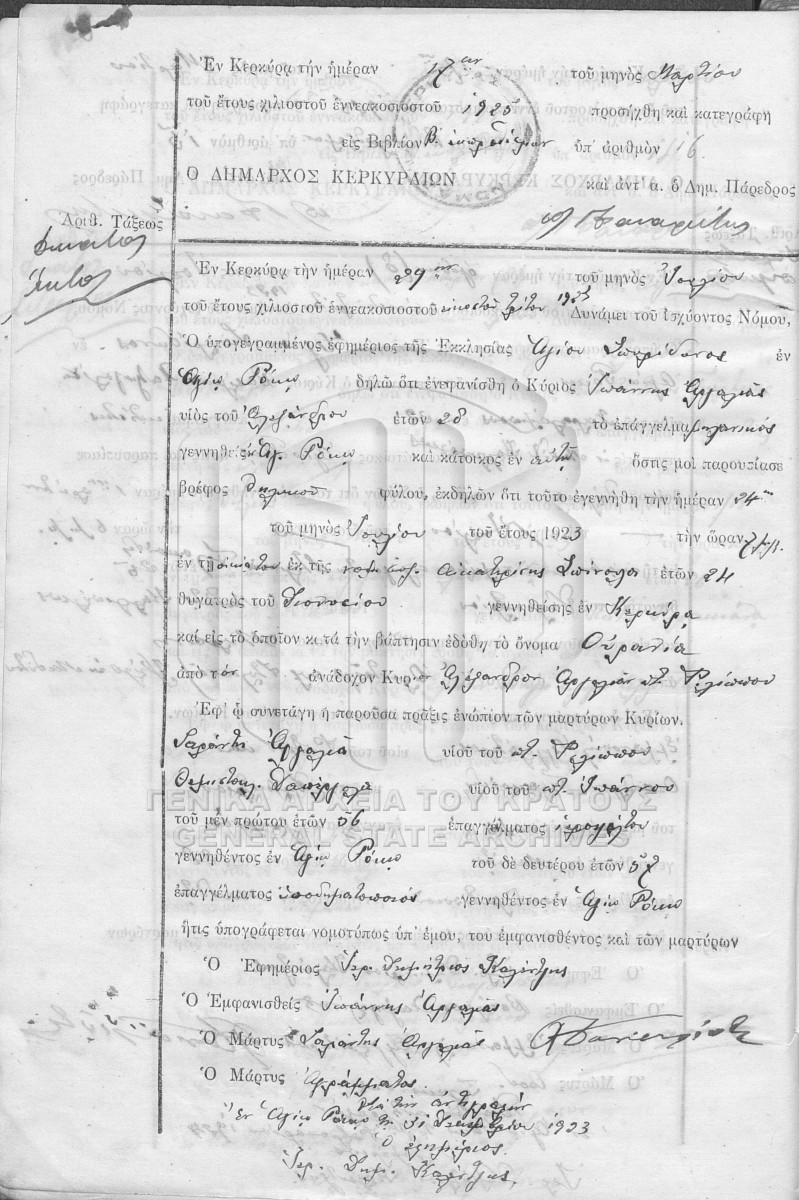 Ἐν Κερκύρᾳ τὴν ἡμέραν 17ην τοῦ μηνὸς Μαρτίου
τοῦ ἔτους χιλιοστοῦ ἐννεακοσιοστοῦ 1925 προσήχθη καὶ κατεγράφη
εἰς Βιβλίον Β. ὑπ' ἀριθμὸν 16
Ὁ ΔΗΜΑΡΧΟΣ ΚΕΡΚΥΡΑΙΩΝ καὶ ἀντ' α. ὁ Δημ. Πάρεδρος
Ἀριθ. Τάξεως
δέκατος
ἕκτος
Ἐν Κερκύρᾳ τὴν ἡμέραν 29ην τοῦ μηνὸς Ἰουλίου
τοῦ ἔτους χιλιοστοῦ ἐννεακοσιοστοῦ εἰκοστοῦ τρίτου 1923 Δυνάμει τοῦ Ἰσχύοντος Νόμου,
Ὁ ὑπογεγραμμένος ἐφημέριος τῆς Ἐκκλησίας Ἁγίου Σπυρίδωνος ἐν
Ἁγίῳ Ρόκῳ δηλῶ ὅτι ἐνεφανίσθη ὁ Κύριος Ἰωάννης Ἀργαλιᾶς
υἱὸς τοῦ Ἀλεξάνδρου ἐτῶν 28 τὸ ἐπάγγελμα μηχανικός
γεννηθεὶς ἐν Ἁγ. Ρόκῳ καὶ κάτοικος ἐν αὐτῷ ὅστις μοὶ παρουσίασε
βρέφος θηλυκοῦ φύλου, ἐκδηλῶν ὅτι τοῦτο ἐγεννήθη τὴν ἡμέραν 24ην
τοῦ μηνὸς Ἰουλίου τοῦ ἔτους 1923 τὴν ὥραν 7 μ.μ.
ἐν τῇ οἰκίᾳ του ἐκ τῆς νομ. συζ. Αἰκατερίνης Σπίνουλα ἐτῶν 24
θυγατρὸς τοῦ Διονυσίου γεννηθείσης ἐν Κερκύρᾳ
καὶ εἰς τὸ ὁποῖον κατὰ τὴν βάπτησιν ἐδόθη τὸ ὄνομα Οὐρανία
ἀπὸ τὸν ἀνάδοχον Κύριον Ἀλέξανδρον Ἀργαλιᾶν ποτ. Φιλίππου
Ἐφ' ᾧ συνετάγη ἡ παροῦσα πρᾶξις ἐνώπιον τῶν μαρτύρων Κυρίων.
Σαράντη Ἀργαλιᾶ υἱοῦ τοῦ ποτ. Φιλίππου
Θεμιστοκλ. υἱοῦ τοῦ ποτ. Ἰωάννου
ΓΕΝΙΚΑ ΑΡΧΕΙΑ ΤΟΥ ΚΡΑΤΟΥΣ
GENERAL STATE ARCHIVES
τοῦ μὲν πρώτου ἐτῶν 56 ἐπαγγέλματος ἱεροψάλτου
γεννηθέντος ἐν Ἁγίῳ Ρόκῳ τοῦ δὲ δευτέρου ἐτῶν 57
ἐπαγγέλματος ὑποδηματοποιός γεννηθέντος ἐν Ἁγίῳ Ρόκῳ
ἥτις ὑπογράφεται νομοτύπως ὑπ' ἐμοῦ, τοῦ ἐμφανισθέντος καὶ τῶν μαρτύρων
Ὁ Ἐφημέριος Ἱερ. Δημήτριος Καλέντζης
Ὁ Ἐμφανισθεὶς Ἰωάννης Ἀργαλιᾶς
Ὁ Μάρτυς Σαράντης Ἀργαλιᾶς
Ὁ Μάρτυς ἀγράμματος.
διὰ τὴν ἀντιγραφήν
Ἐν Ἁγίῳ Ρόκῳ τῇ 31 1923
Ὁ ἐφημέριος
Ἱερ. Δημ. Καλέντζης